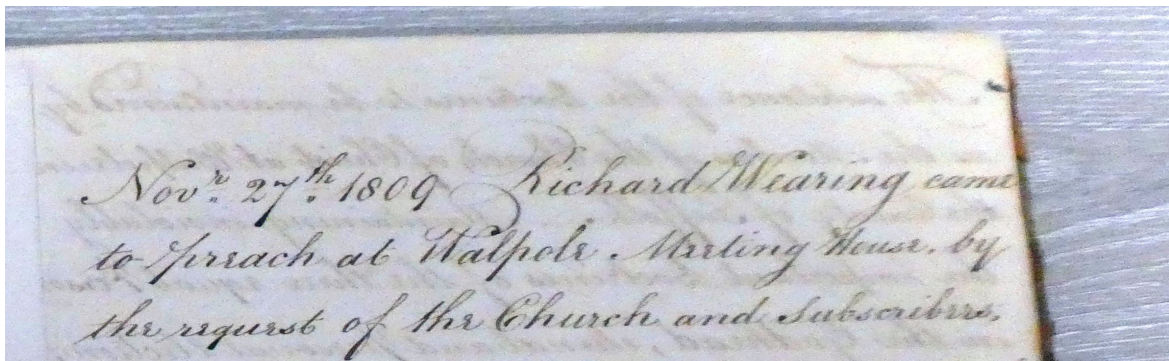 Novr. 27th. 1809 Richard Wearing came
to preach at Walpole Meeting House, by
the request of the Church and Subscribers,